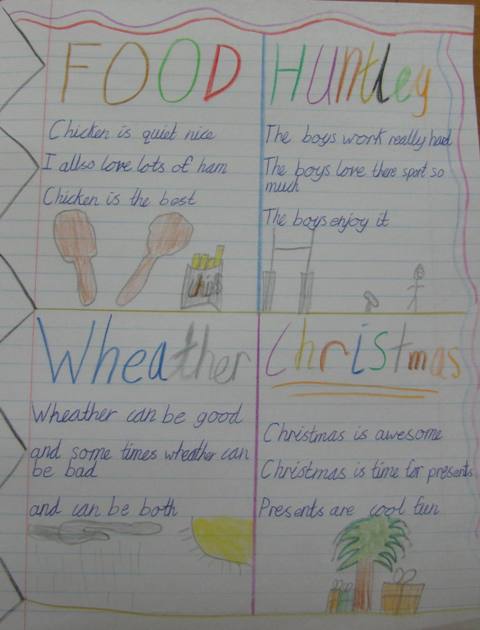 FOOD
Chicken is quiet nice
I allso love lots of ham
Chicken is the best
Huntley
The boys work really hard
The boys love there sport so
much
The boys enjoy it
Wheather
Wheather can be good
and some times wheather can
be bad
and can be both
Christmas
Christmas is awesome
Christmas is time for presents
Presents are cool fun